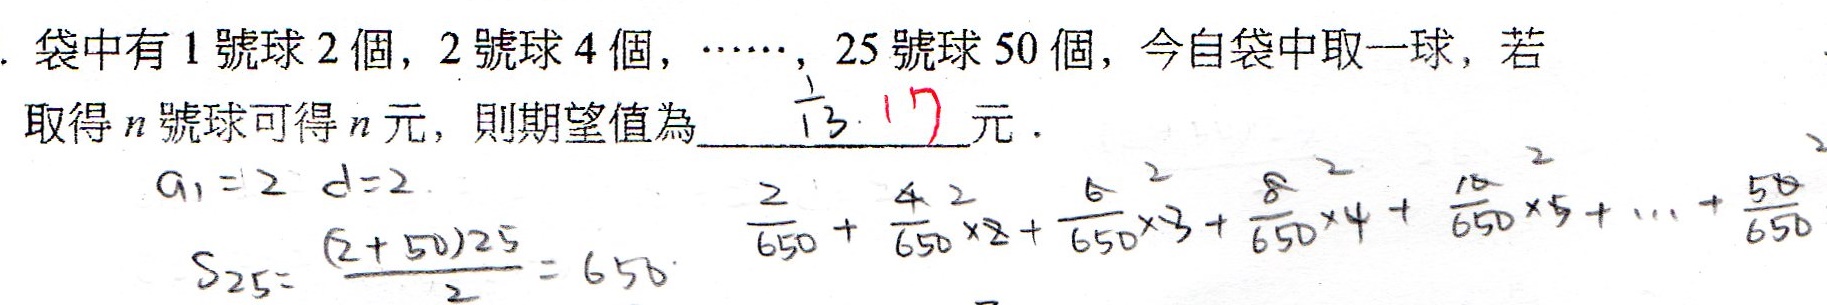 . 袋中有 1 號球 2 個，2 號球 4 個，……，25 號球 50 個，今自袋中取一球，若
取得 n 號球可得 n 元，則期望值為 1/13 17 元．
a₁=2 d=2
2/650 + 4/650×2 + 6/650×3 + 8/650×4 + 10/650×5 + … + 50/650
2 2 2 2 2
S₂₅= (2+50)25/2 = 650